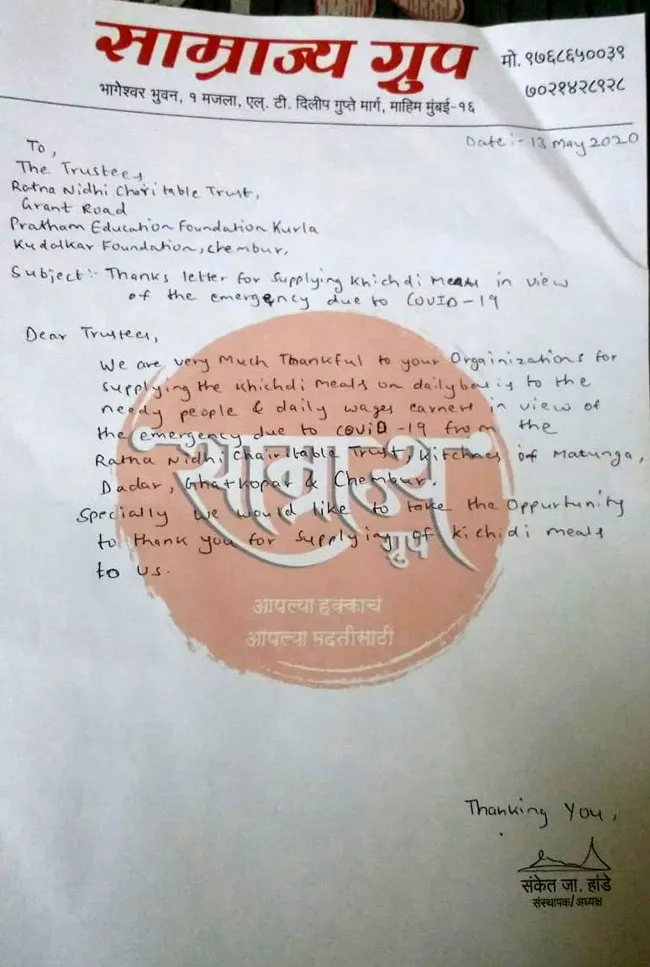 साम्राज्य ग्रुप
मो. ९७६८६५००३९
७०२१४२८९२८
भागेश्वर भुवन, १ मजला, एल्. टी. दिलीप गुप्ते मार्ग, माहिम मुंबई-१६
Date:- 13 May 2020
To,
The Trustees,
Ratna Nidhi Charitable Trust,
Grant Road
Pratham Education Foundation Kurla
Kudalkar Foundation, Chembur.
Subject:- Thanks letter for supplying Khichdi Meals in view
of the emergency due to COVID-19
Dear Trustees,
We are very Much Thankful to your Orgainizations for
supplying the khichdi meals on daily basis to the
needy people & daily wages earners in view of
the emergency due to COVID-19 from the
Ratna Nidhi Chairitable Trust, Kitchaes of Matunga,
Dadar, Ghatkopar & Chembur.
Specially we would like to take the Oppurtunity
to thank you for supplying of kichidi meals
to us.
साम्राज्य
ग्रुप
आपल्या हक्काचं
आपल्या मदतीसाठी
Thanking You,
संकेत जा. हांडे
संस्थापक/अध्यक्ष